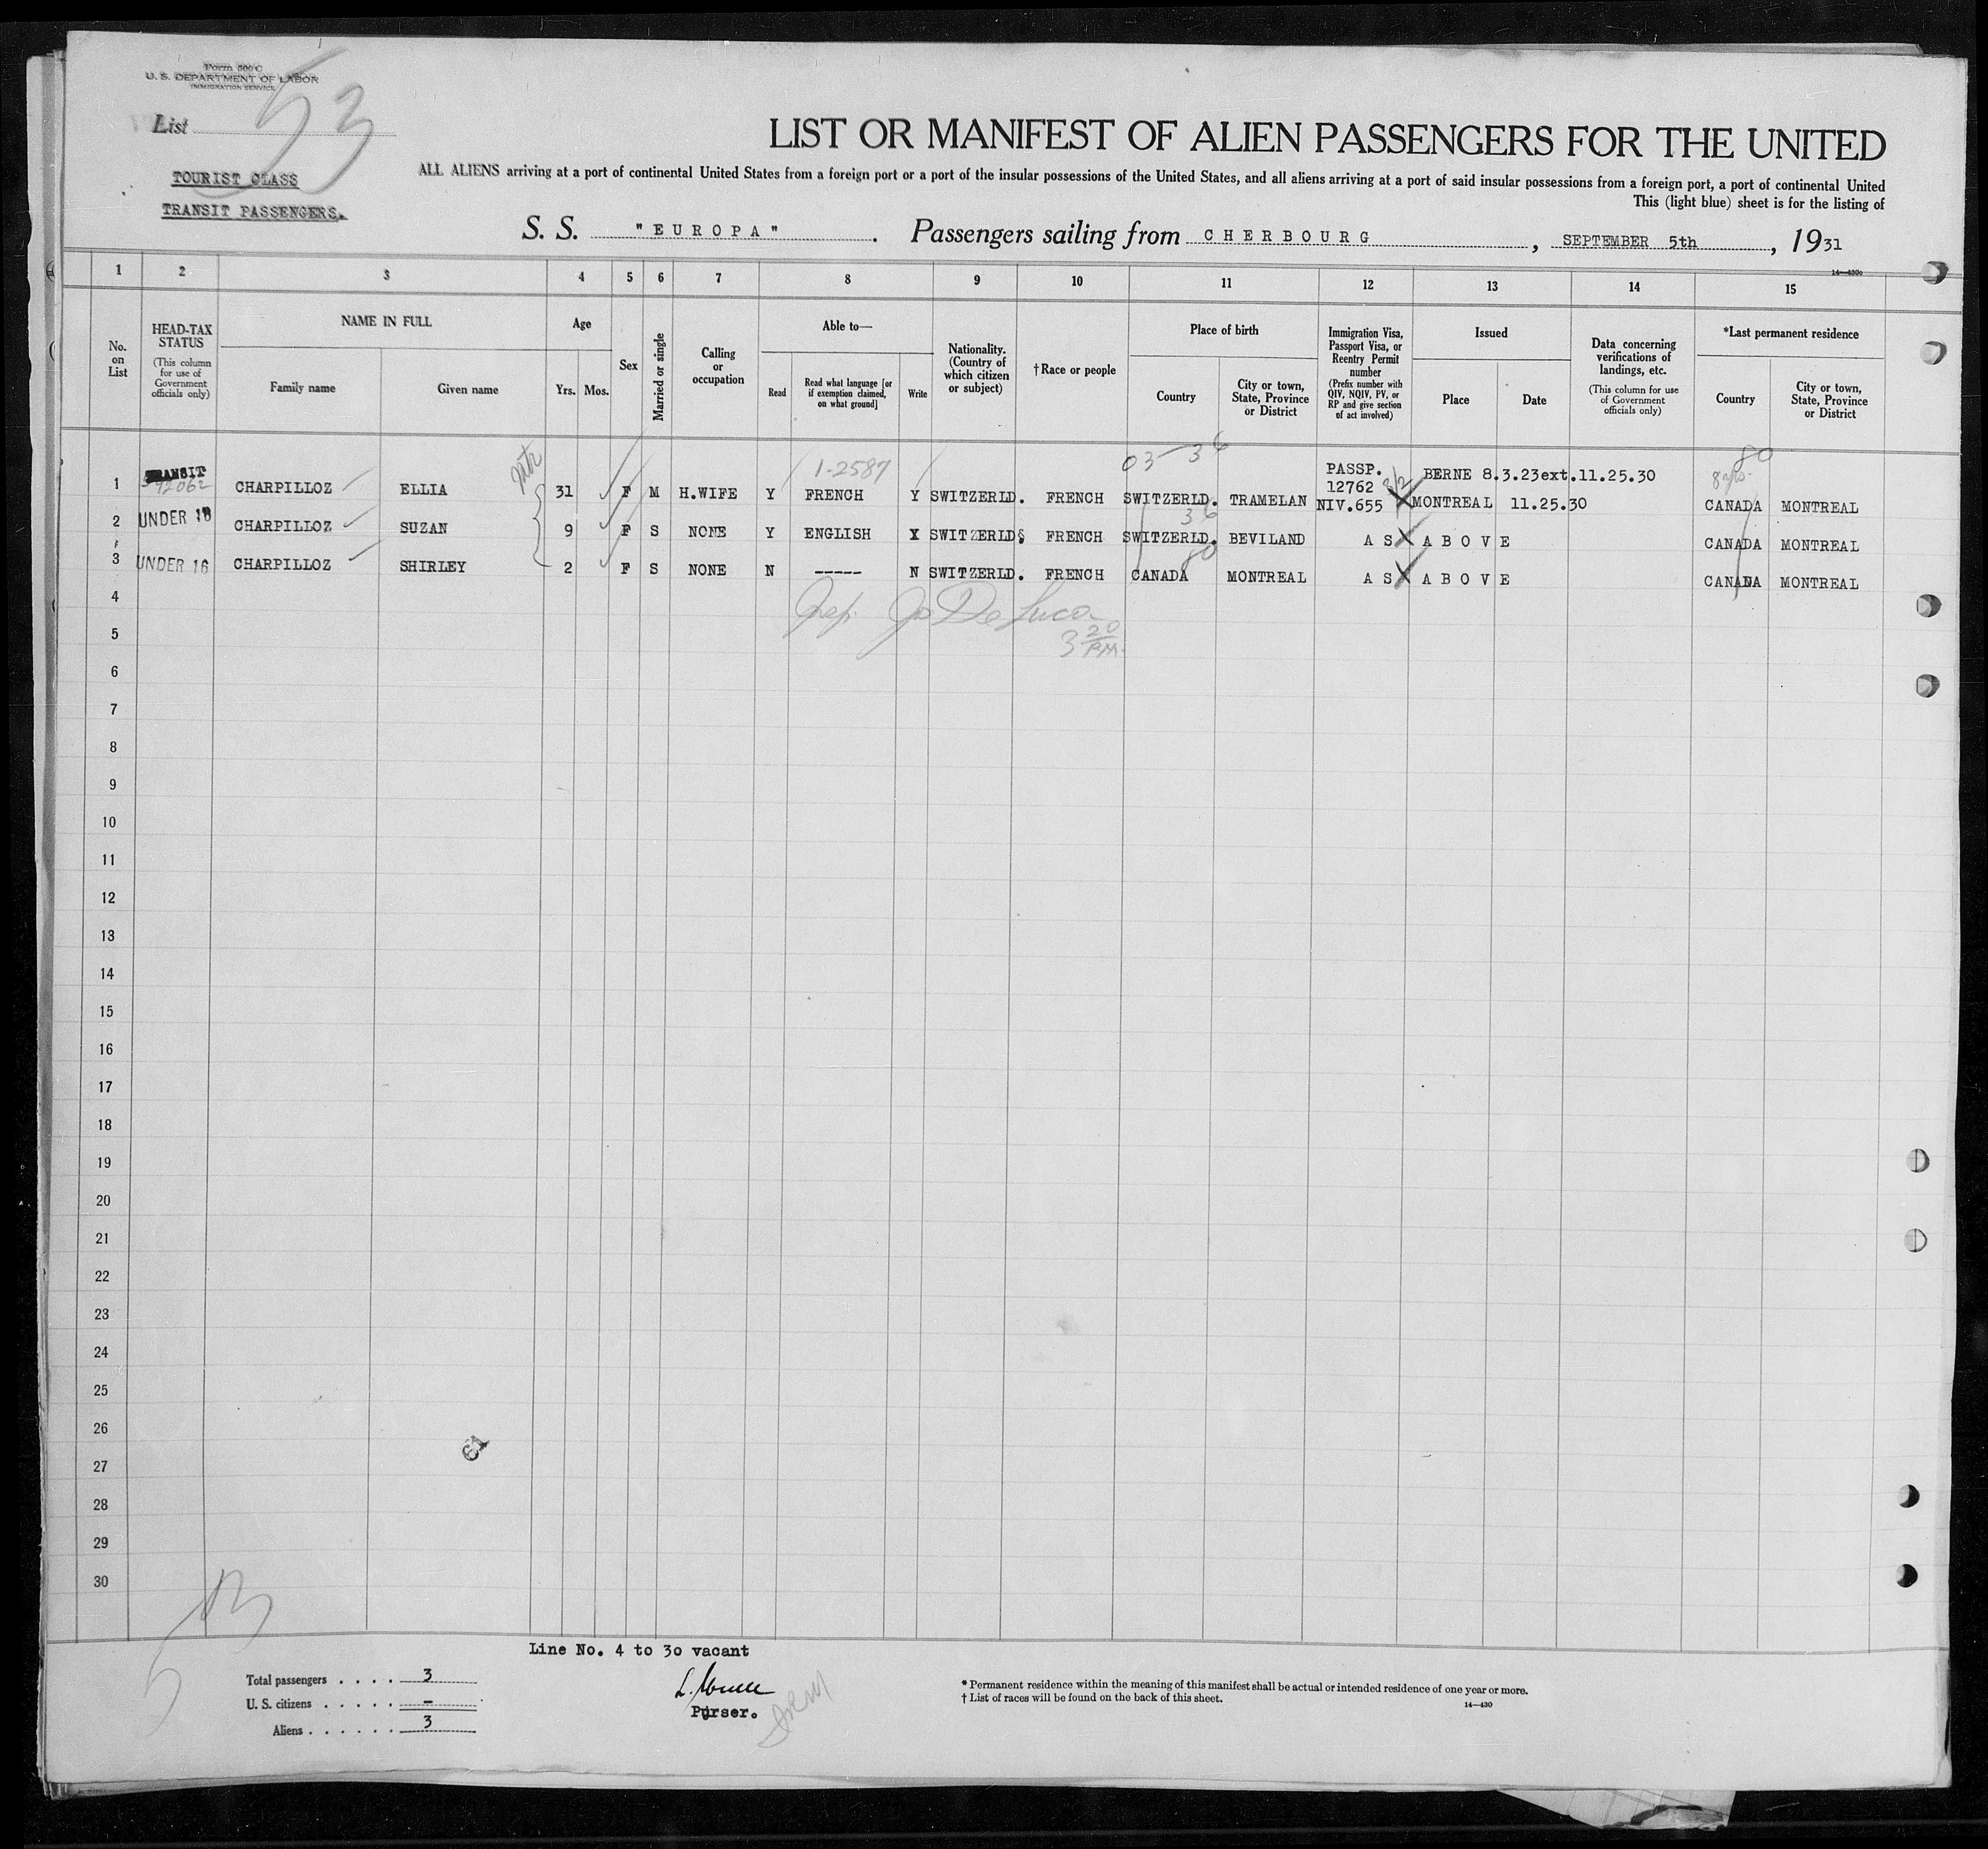 Form 500 C
U. S. DEPARTMENT OF LABOR
IMMIGRATION SERVICE
List 53
TOURIST CLASS
TRANSIT PASSENGERS.
LIST OR MANIFEST OF ALIEN PASSENGERS FOR THE UNITED
ALL ALIENS arriving at a port of continental United States from a foreign port or a port of the insular possessions of the United States, and all aliens arriving at a port of said insular possessions from a foreign port, a port of continental United
This (light blue) sheet is for the listing of
S. S. "EUROPA". Passengers sailing from CHERBOURG, SEPTEMBER 5th, 1931
14—430c
1 2 3 4 5 6 7 8 9 10 11 12 13 14 15
No. on List
HEAD-TAX STATUS
(This column for use of Government officials only)
NAME IN FULL
Family name
Given name
Age
Yrs. Mos.
Sex
Married or single
Calling or occupation
Able to—
Read
Read what language [or if exemption claimed, on what ground]
Write
Nationality. (Country of which citizen or subject)
†Race or people
Place of birth
Country
City or town, State, Province or District
Immigration Visa, Passport Visa, or Reentry Permit number
(Prefix number with QIV, NQIV, PV, or RP and give section of act involved)
Issued
Place
Date
Data concerning verifications of landings, etc.
(This column for use of Government officials only)
*Last permanent residence
Country
City or town, State, Province or District
1-2587 03 36 PASSP. 80
TRANSIT 12762 BERNE 8.3.23ext.11.25.30 8 yrs.
1 CHARPILLOZ ELLIA 31 F M H.WIFE Y FRENCH Y SWITZERLD. FRENCH SWITZERLD. TRAMELAN NIV.655 MONTREAL 11.25.30 CANADA MONTREAL
36
2 UNDER 16 CHARPILLOZ SUZAN 9 F S NONE Y ENGLISH Y SWITZERLD. FRENCH SWITZERLD. BEVILAND AS ABOVE CANADA MONTREAL
80
3 UNDER 16 CHARPILLOZ SHIRLEY 2 F S NONE N ----- N SWITZERLD. FRENCH CANADA MONTREAL AS ABOVE CANADA MONTREAL
4
De Luca
5
3 20 P.M.
6
7
8
9
10
11
12
13
14
15
16
17
18
19
20
21
22
23
24
25
26
61
27
28
29
30
53
Line No. 4 to 30 vacant
Total passengers . . . . 3
U. S. citizens . . . . . –
Aliens . . . . . . 3
Purser.
* Permanent residence within the meaning of this manifest shall be actual or intended residence of one year or more.
† List of races will be found on the back of this sheet.
14—430